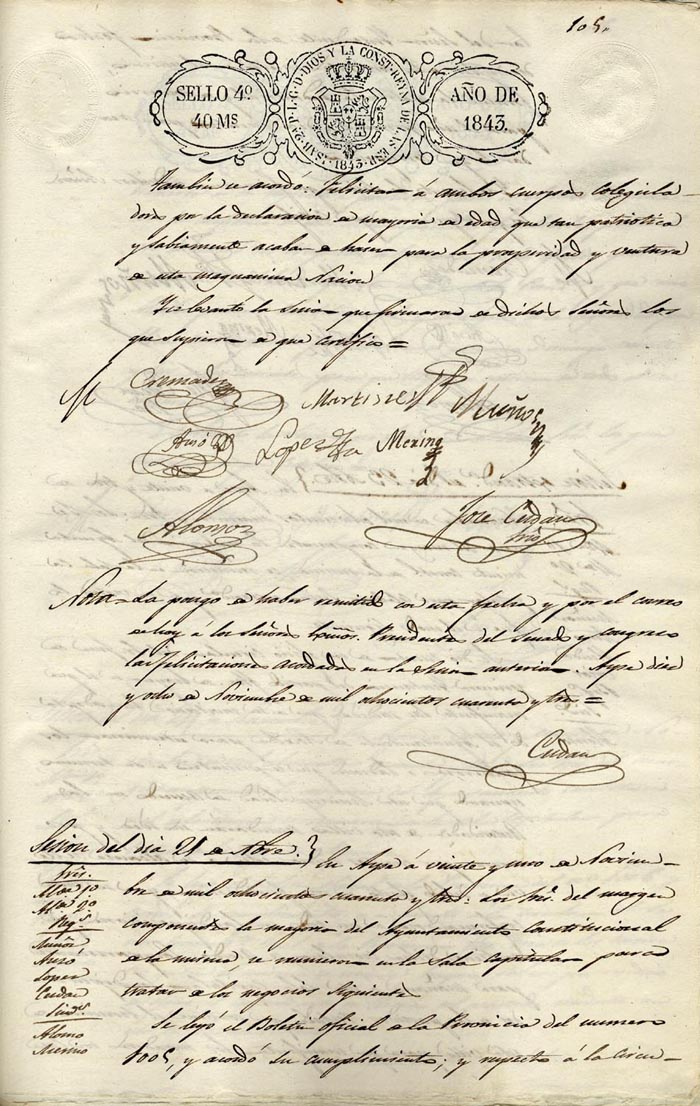 105.
SELLO 4º
40 Mˢ
YSAB. 2ª P. L. G. D. DIOS Y LA CONST. REYNA DE LAS ESP. 1843.
AÑO DE
1843.
Tambien se acordó: Felicitar á ambos cuerpos Colegisla-
dores por la declaracion de mayoria de edad que tan patriotica
y sabiamente acaban de hacer para la prosperidad y ventura
de esta magnanima Nacion
Y se levantó la Sesion que firmaron de dichos Señores los
que supieron de que certifico =
Cremades Martinez Muñoz
Auró Lopez Merino
Alonso Jose Cerdan
Srio
Nota = La pongo de haber remitido con esta fecha y por el correo
de hoy á los Señores Presidentes del Senado y Congreso
las felicitaciones acordadas en la Sesion anterior. Aspe diez
y ocho de Noviembre de mil ochocientos cuarenta y tres =
Cerdan
Sesion del dia 21 de Nbre.} En Aspe á veinte y uno de Noviem-
Sres.
Alce 1º
Alce 2º
Regs
Muñoz
Auró
Lopez
Cerdan
Sindcs
Alonso
Merino
bre de mil ochocientos cuarenta y tres: Los Sres. del margen
componentes la mayoria del Ayuntamiento Constitucional
de la misma, se reunieron en la Sala capitular para
tratar de los negocios siguientes
Se leyó el Boletin oficial de la Provincia del numero
1005, y acordó su cumplimiento; y respecto á la Circu-